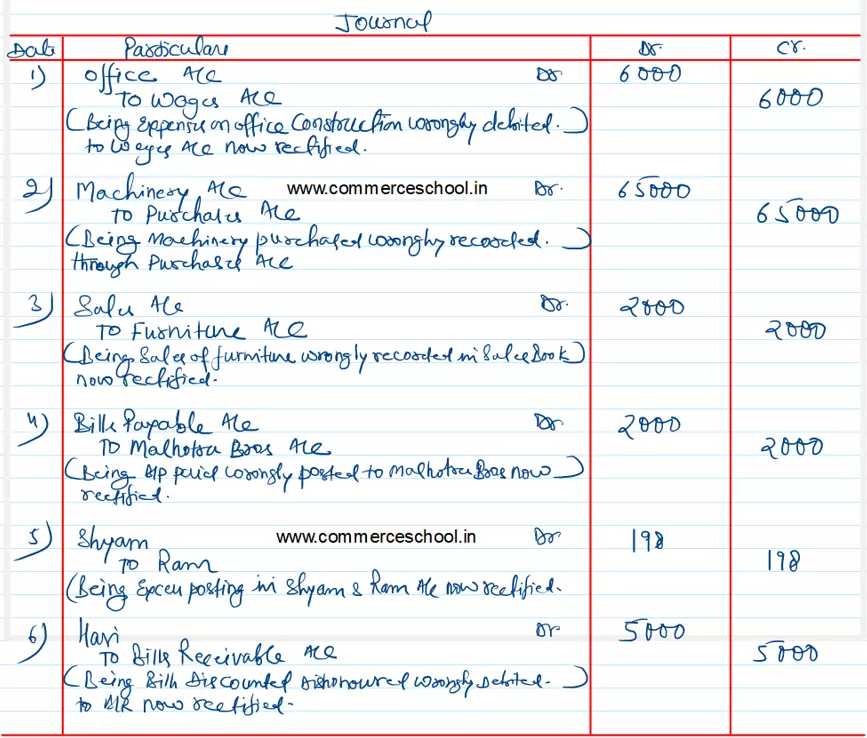 Journal
Date Particulars Dr. Cr.
1) Office A/c Dr 6000
To Wages A/c 6000
(Being Expenses on office Construction wrongly debited.)
to Wages A/c now rectified.
2) Machinery A/c www.commerceschool.in Dr. 65000
To Purchases A/c 65000
(Being Machinery purchased wrongly recorded.)
through Purchases A/c
3) Sales A/c Dr. 2000
To Furniture A/c 2000
(Being Sales of furniture wrongly recorded in Sales Book)
now rectified.
4) Bills Payable A/c Dr 2000
To Malhotra Bros A/c 2000
(Being B/P paid wrongly posted to Malhotra Bros now)
rectified.
5) Shyam www.commerceschool.in Dr 198
To Ram 198
(Being Excess posting in Shyam & Ram A/c now rectified.
6) Hari Dr 5000
To Bills Receivable A/c 5000
(Being Bills Discounted dishonoured wrongly debited.)
to B/R now rectified.